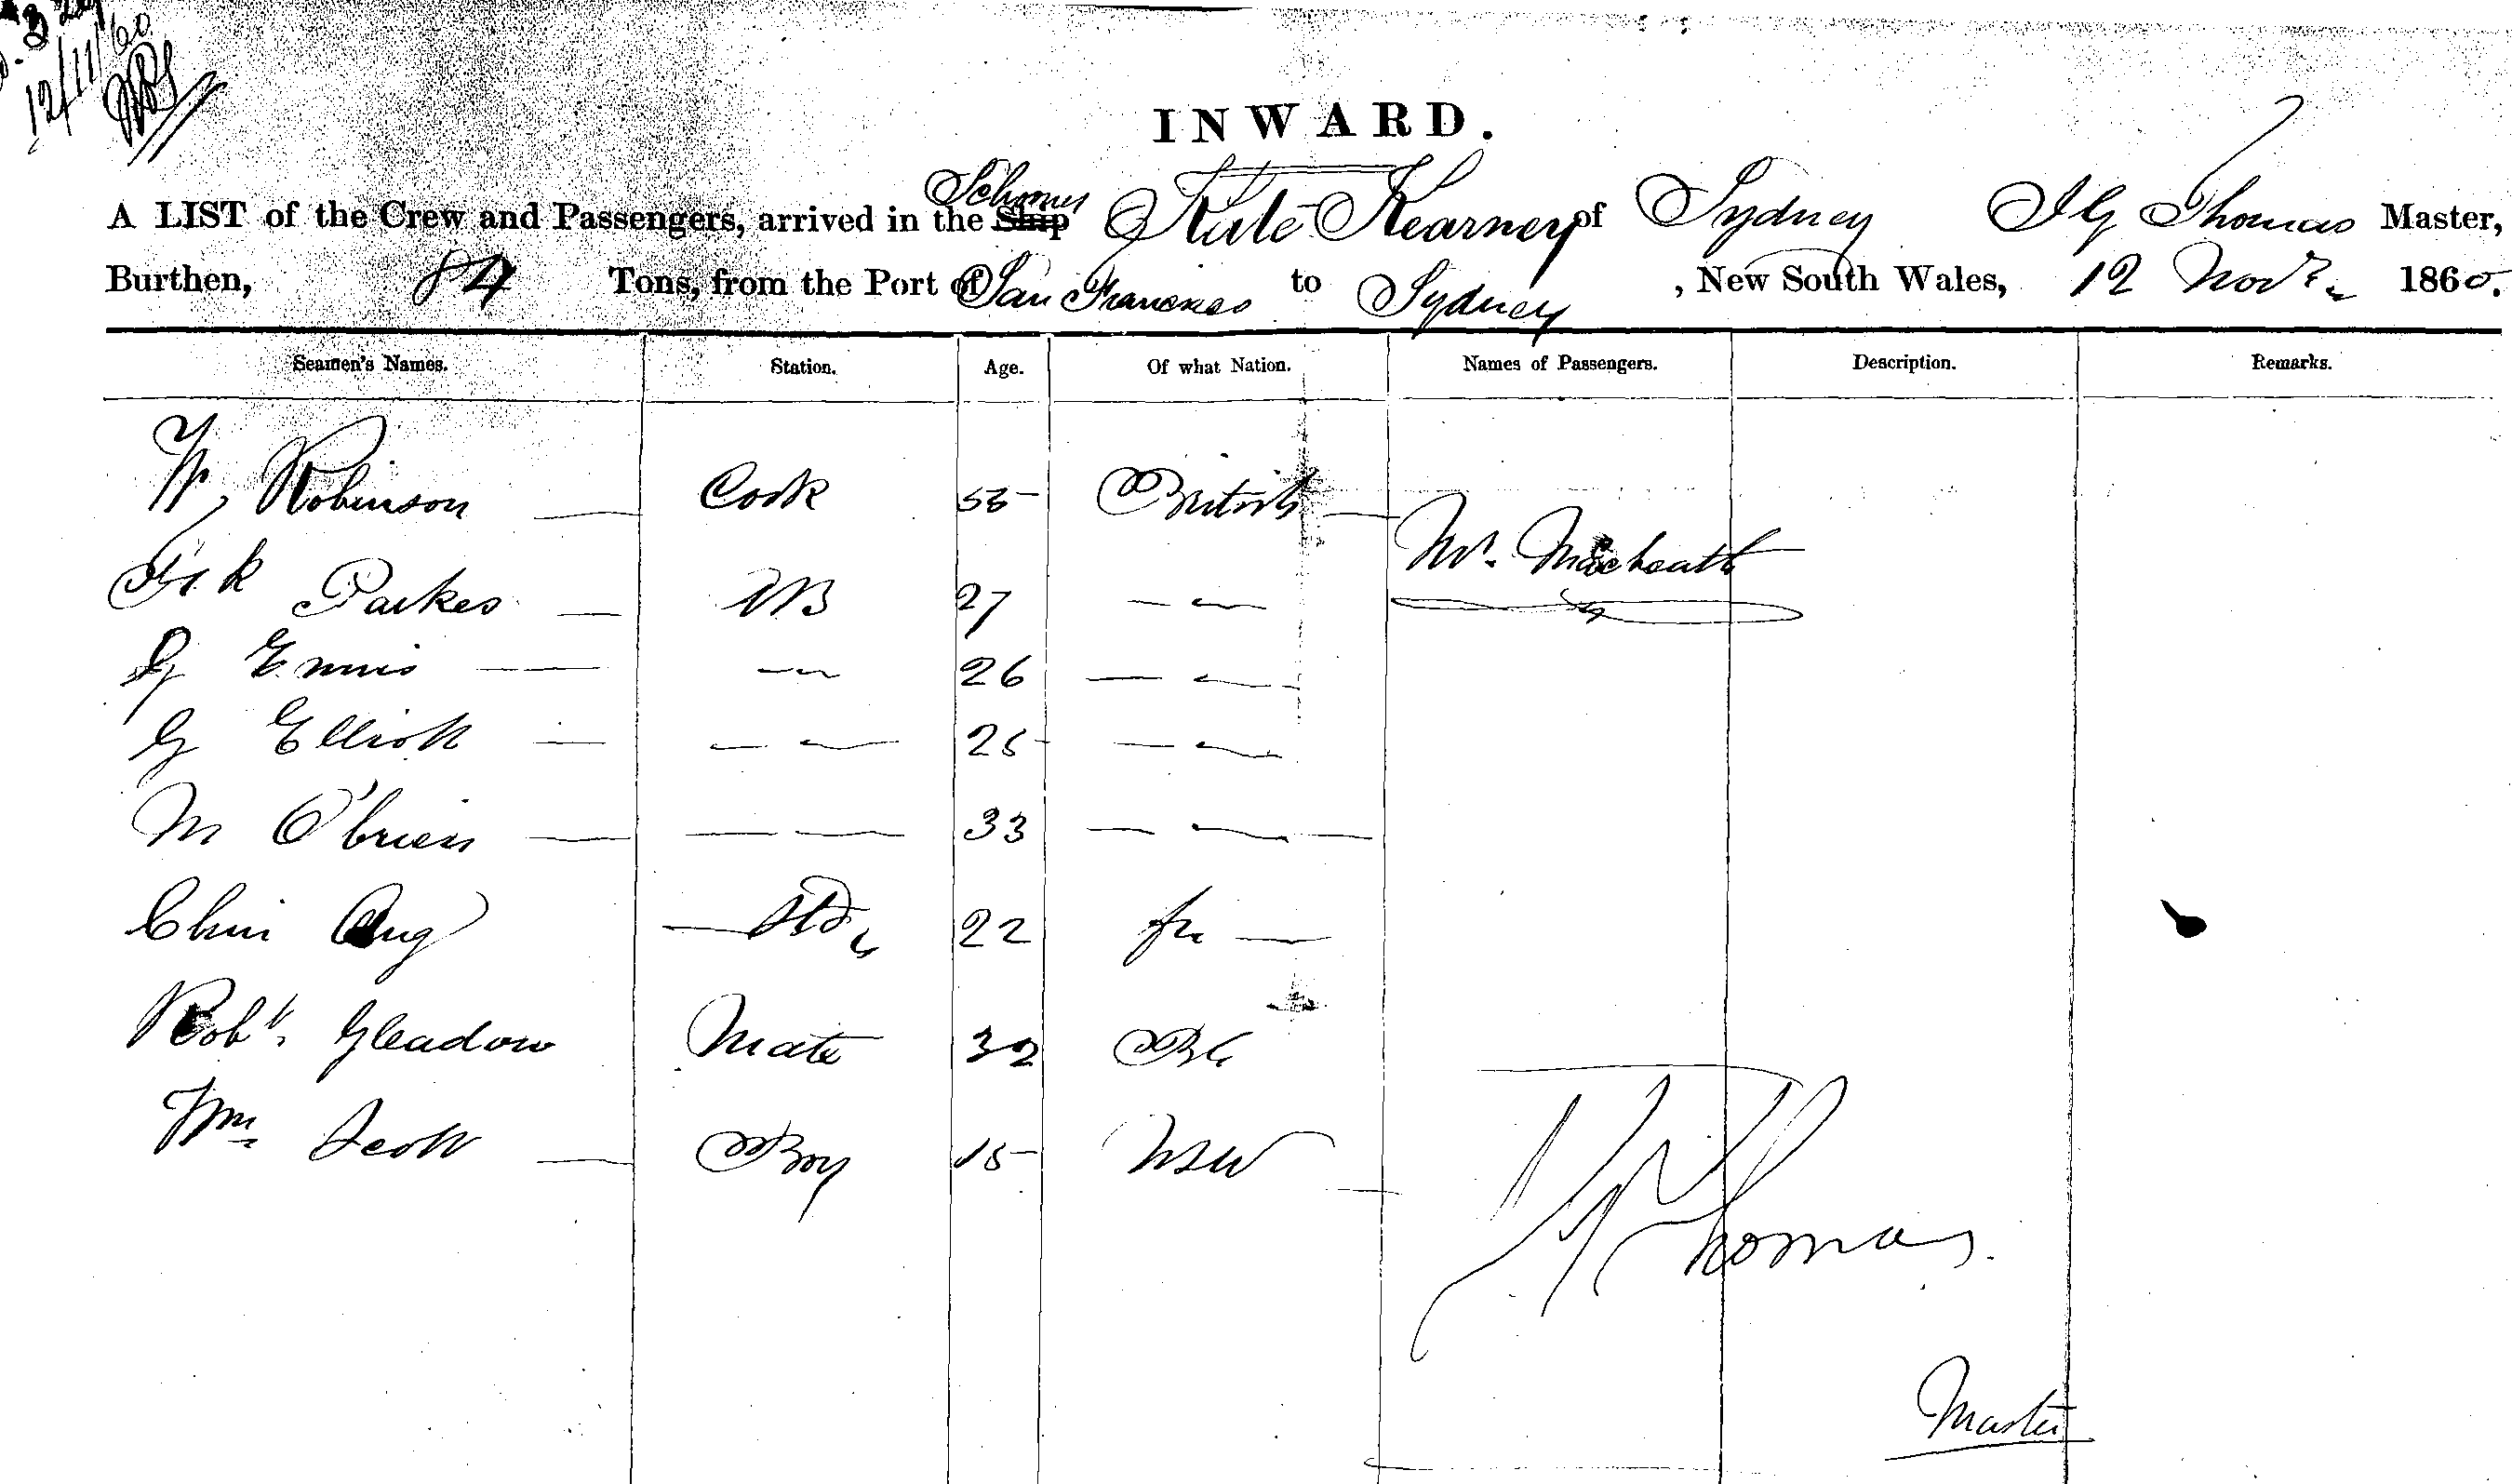 12/11/60
INWARD.
A LIST of the Crew and Passengers, arrived in the Ship Schooner Kate Kearney of Sydney J G Thomas Master,
Burthen, 84 Tons, from the Port of San Francisco to Sydney, New South Wales, 12 Novr. 1860.
Seamen's Names. Station. Age. Of what Nation. Names of Passengers. Description. Remarks.
W Robinson — Cook British —
Mr. Macheath
Fredk Parkes — AB 27 — —
Ennis — — 26 — —
G Elliott — — — 25 — —
M O'brien — — — 33 — —
Chui Aug — Std. 22 —
Robt. Gleadow Mate 32
Wm Scott — Boy 15 NSW —
Thomas.
Master